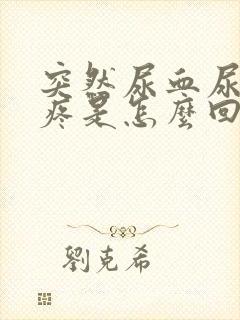 突然尿血尿
疼是怎麼回
劉克希